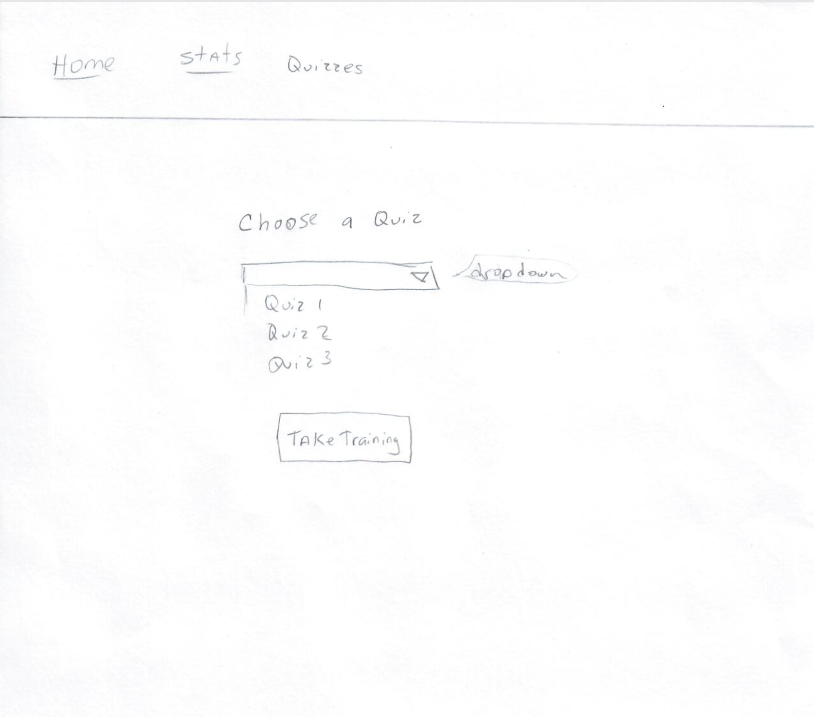 Home Stats Quizzes
Choose a Quiz
dropdown
Quiz 1
Quiz 2
Quiz 3
Take Training